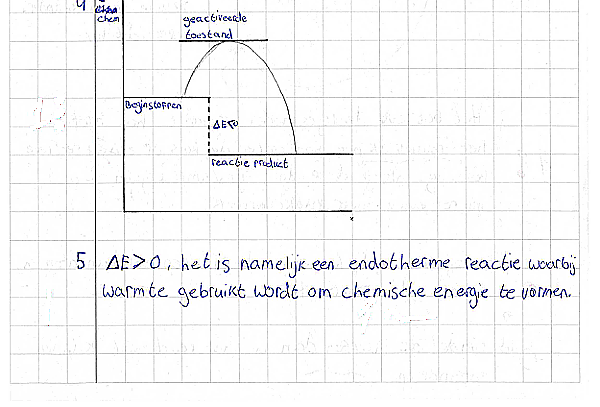 4
chem
geactiveerde
toestand
Beginstoffen
ΔE<0
reactie product
5 ΔE>0, het is namelijk een endotherme reactie waarbij
warmte gebruikt wordt om chemische energie te vormen.